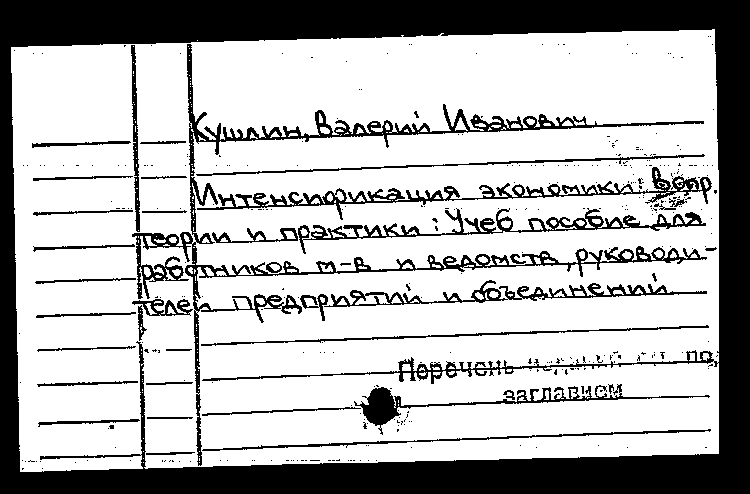 Кушлин, Валерий Иванович.
Интенсификация экономики: Вопр.
теории и практики : Учеб пособие для
работников м-в и ведомств, руководи-
телей предприятий и объединений
Перечень см. под
заглавием